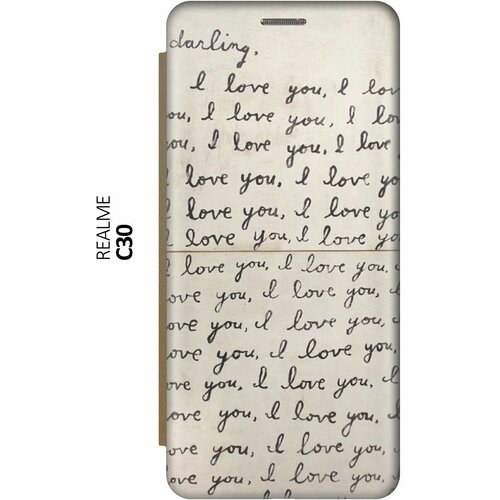 REALME
C30
darling,
I love you, I lov
ou, I love you, I lov
ou, I love you, I lo
love you, I love yo
love you, I love yo
love you, I love yo
I love you, I love you,
ove you, I love you,
ove you, I love you,
ove you, I love you,
ove you, I love you, I
ove you, I love you, I
ove you, I love you,
ove you, I love you,